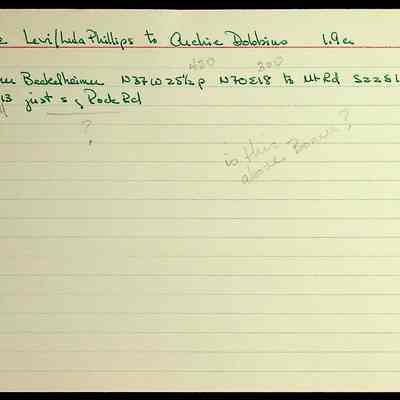 e Levi/Lula Phillips to Archie Dobbins 1.9a
420 200
Beckelheimer N37W25½p N70E18 to Mt Rd S22E1
13 just s of Rock Rd
?
is this
above Bower?